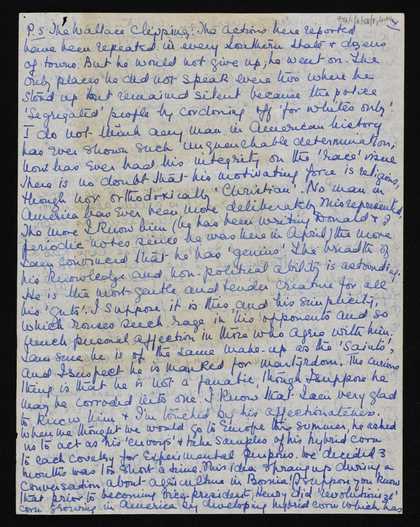 P.S The Wallace Clipping: The actions here reported
have been repeated in every Southern State & dozens
of towns. But he would not give up, he went on. The
only places he did not speak were two where he
stood up but remained silent because the police
'segregated' people by cordoning off 'for whites only'
I do not think any man in American history
has ever shown such unquenchable determination;
none has ever had his integrity on the 'race' issue
There is no doubt that his motivating force is religious,
though not orthodoxically 'Christian'. No man in
America has ever been more deliberately misrepresented.
The more I know him (he has been writing Donald & I
periodic notes since he was here in April) the more
I am convinced that he has 'genius'. The breadth of
his knowledge and non-political ability is astounding.
He is the most gentle and tender creature for all
his 'guts'. I suppose it is this and his simplicity,
which rouses such rage in his opponents and so
much personal affection in those who agree with him.
I am sure he is of the same make-up as the 'Saints',
and I suspect he is marked for martyrdom. The curious
thing is that he is not a fanatic, though I suppose he
may be corroded into one. I know that I am very glad
to know him & I'm touched by his affectionateness.
When we thought we would go to Europe this summer, he asked
us to act as his 'envoys' & take samples of his hybrid corn
to each country for experimental purposes. We decided 3
months was too short a time. This idea sprang up during a
conversation about agriculture in Bosnia! I suppose you know
that prior to becoming Vice president, Henry did 'revolutionize'
corn growing in America by developing hybrid corn which has